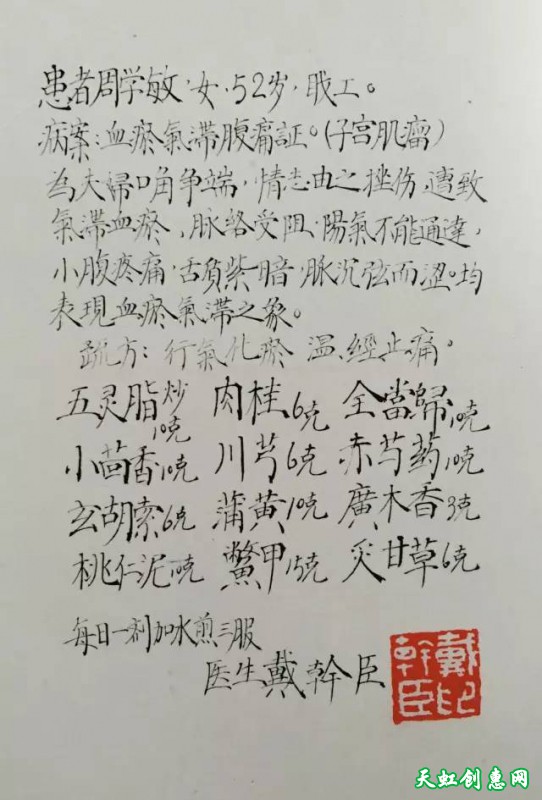 患者周学敏,女,52岁,职工。
病案:血瘀氣滯腹痛証。(子宫肌瘤)
为夫婦口角争端,情志由之挫伤,遭致
氣滯血瘀,脉络受阻,陽氣不能通達,
小腹疼痛,舌質紫暗,脉沉弦而涩。均
表現血瘀氣滯之象。
疏方:行氣化瘀 温經止痛。
五灵脂炒10克 肉桂6克 全當歸10克
小茴香10克 川芎6克 赤芍药10克
玄胡索6克 蒲黄10克 廣木香3克
桃仁泥10克 鱉甲15克 炙甘草6克
每日一剂加水煎三服
医生戴幹臣
戴印幹臣
天虹创惠网